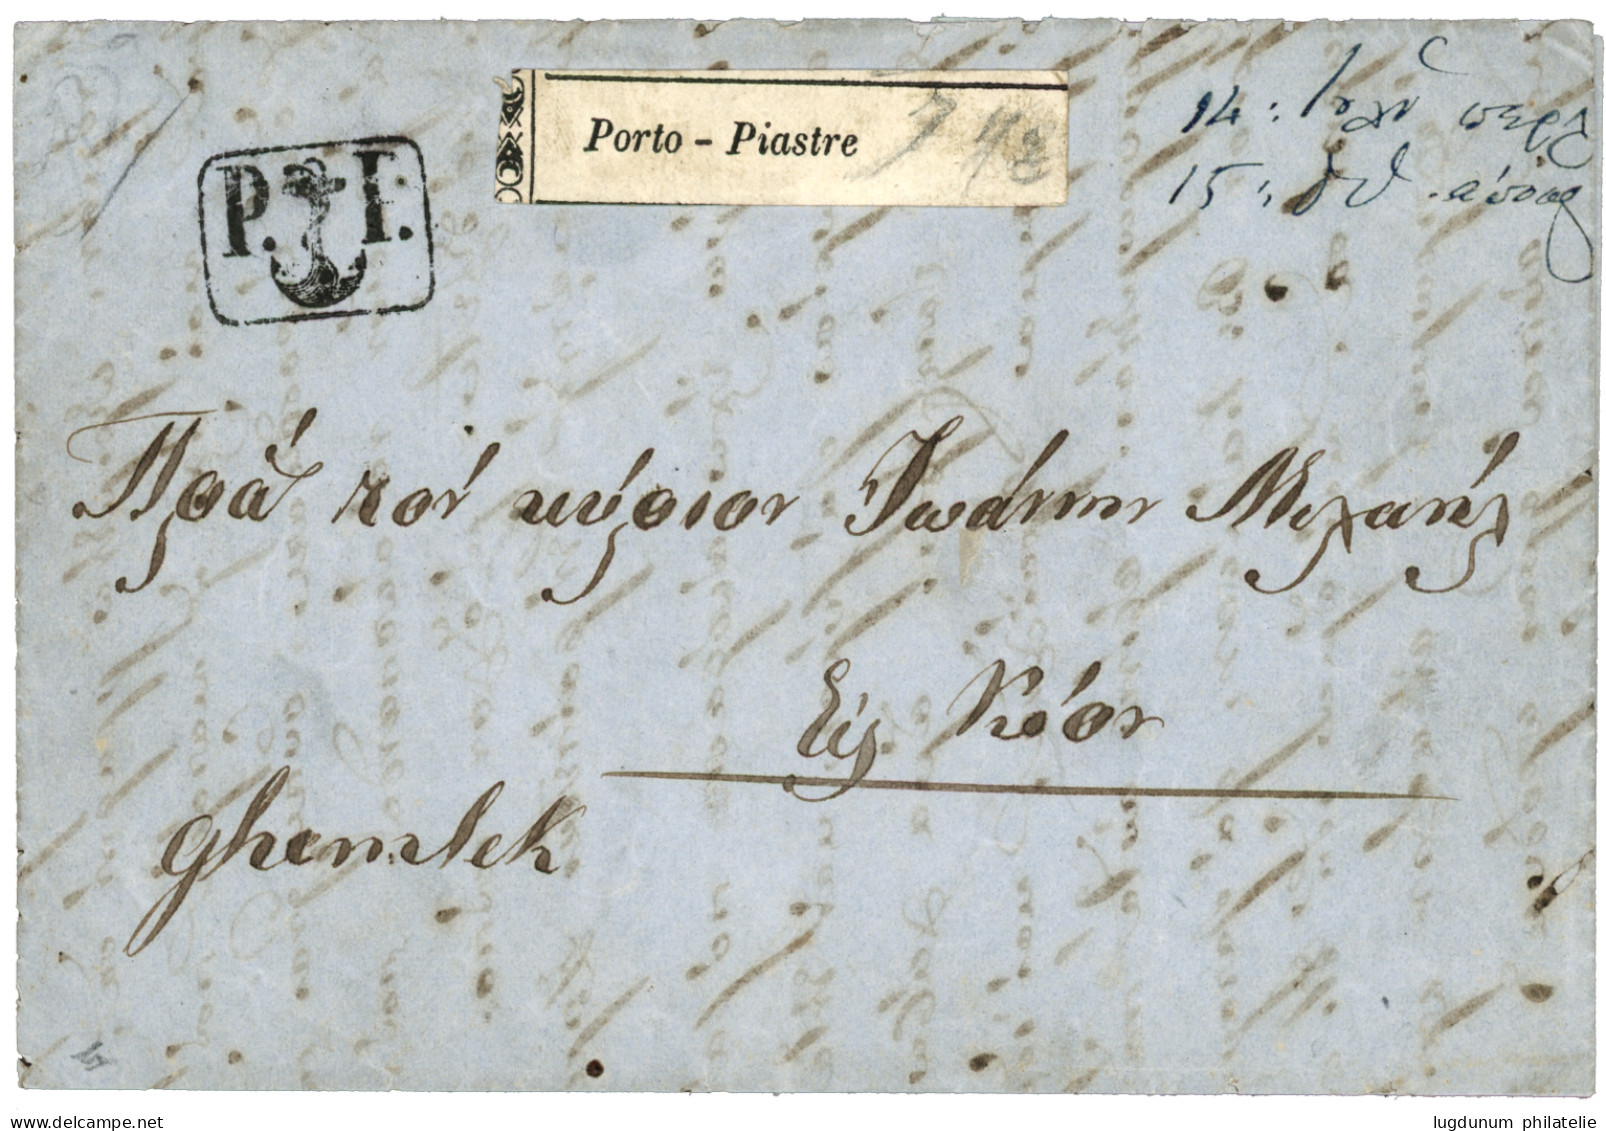 P. I.
Porto - Piastre
14:
15:
Πρὸς τὸν κύριον Ἰωάννην Μιχαήλ
Εἰς Κίον
ghemlek
www.delcampe.net
lugdunum philatelie